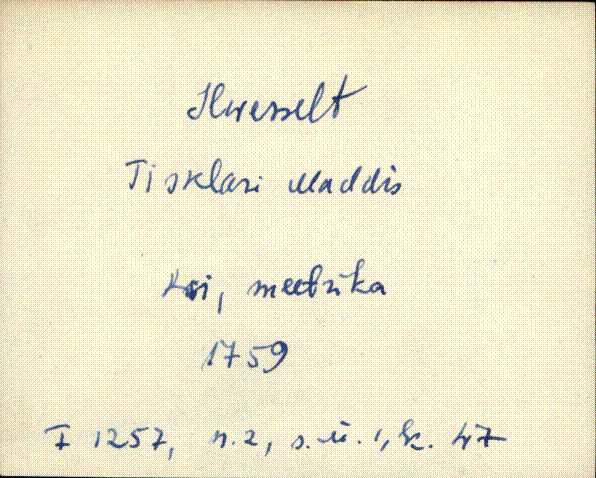 Ilwesselt
Tisklari Maddis
Koi, meetrika
1759
F 1257, n. 2, s. ü. 1, lk. 47